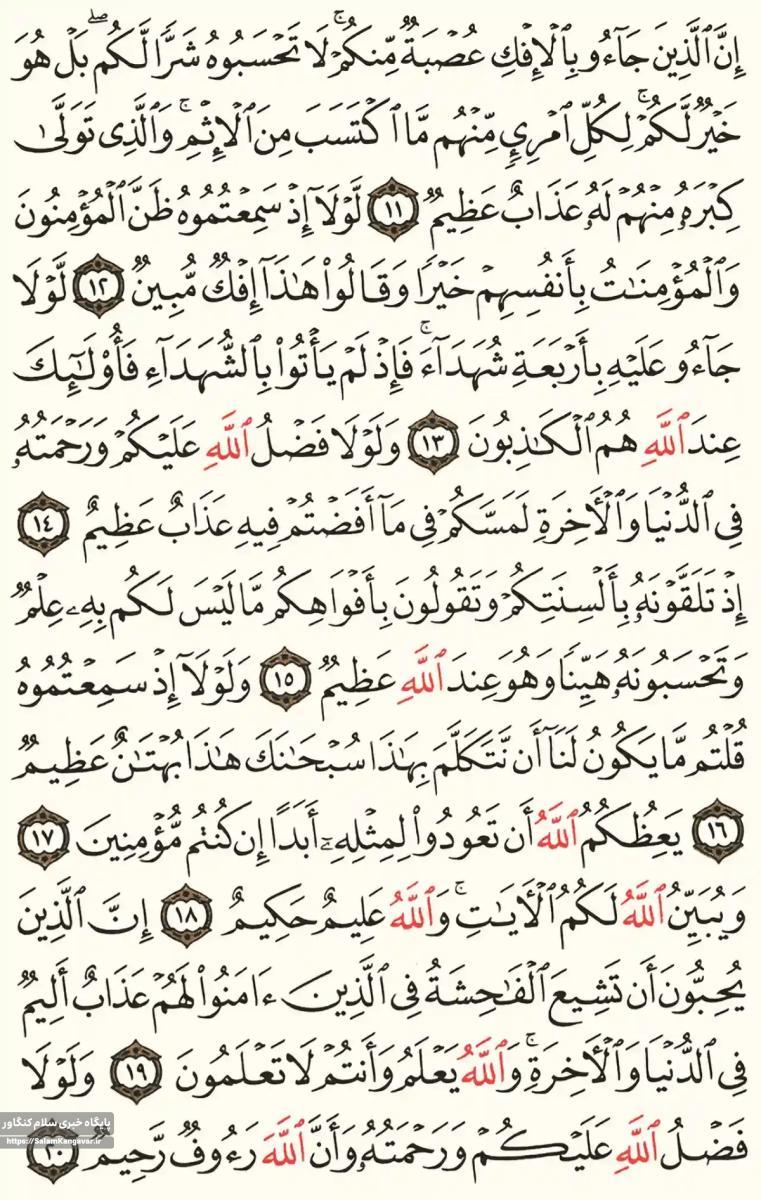 إِنَّ ٱلَّذِينَ جَآءُو بِٱلْإِفْكِ عُصْبَةٌ مِّنكُمْ ۚ لَا تَحْسَبُوهُ شَرًّا لَّكُم ۖ بَلْ هُوَ
خَيْرٌ لَّكُمْ ۚ لِكُلِّ ٱمْرِئٍ مِّنْهُم مَّا ٱكْتَسَبَ مِنَ ٱلْإِثْمِ ۚ وَٱلَّذِى تَوَلَّىٰ
كِبْرَهُۥ مِنْهُمْ لَهُۥ عَذَابٌ عَظِيمٌ ١١ لَّوْلَآ إِذْ سَمِعْتُمُوهُ ظَنَّ ٱلْمُؤْمِنُونَ
وَٱلْمُؤْمِنَٰتُ بِأَنفُسِهِمْ خَيْرًا وَقَالُوا۟ هَٰذَآ إِفْكٌ مُّبِينٌ ١٢ لَّوْلَا
جَآءُو عَلَيْهِ بِأَرْبَعَةِ شُهَدَآءَ ۚ فَإِذْ لَمْ يَأْتُوا۟ بِٱلشُّهَدَآءِ فَأُو۟لَٰٓئِكَ
عِندَ ٱللَّهِ هُمُ ٱلْكَٰذِبُونَ ١٣ وَلَوْلَا فَضْلُ ٱللَّهِ عَلَيْكُمْ وَرَحْمَتُهُۥ
فِى ٱلدُّنْيَا وَٱلْءَاخِرَةِ لَمَسَّكُمْ فِى مَآ أَفَضْتُمْ فِيهِ عَذَابٌ عَظِيمٌ ١٤
إِذْ تَلَقَّوْنَهُۥ بِأَلْسِنَتِكُمْ وَتَقُولُونَ بِأَفْوَاهِكُم مَّا لَيْسَ لَكُم بِهِۦ عِلْمٌ
وَتَحْسَبُونَهُۥ هَيِّنًا وَهُوَ عِندَ ٱللَّهِ عَظِيمٌ ١٥ وَلَوْلَآ إِذْ سَمِعْتُمُوهُ
قُلْتُم مَّا يَكُونُ لَنَآ أَن نَّتَكَلَّمَ بِهَٰذَا سُبْحَٰنَكَ هَٰذَا بُهْتَٰنٌ عَظِيمٌ
١٦ يَعِظُكُمُ ٱللَّهُ أَن تَعُودُوا۟ لِمِثْلِهِۦٓ أَبَدًا إِن كُنتُم مُّؤْمِنِينَ ١٧
وَيُبَيِّنُ ٱللَّهُ لَكُمُ ٱلْءَايَٰتِ ۚ وَٱللَّهُ عَلِيمٌ حَكِيمٌ ١٨ إِنَّ ٱلَّذِينَ
يُحِبُّونَ أَن تَشِيعَ ٱلْفَٰحِشَةُ فِى ٱلَّذِينَ ءَامَنُوا۟ لَهُمْ عَذَابٌ أَلِيمٌ
فِى ٱلدُّنْيَا وَٱلْءَاخِرَةِ ۚ وَٱللَّهُ يَعْلَمُ وَأَنتُمْ لَا تَعْلَمُونَ ١٩ وَلَوْلَا
فَضْلُ ٱللَّهِ عَلَيْكُمْ وَرَحْمَتُهُۥ وَأَنَّ ٱللَّهَ رَءُوفٌ رَّحِيمٌ ٢٠
پایگاه خبری سلام کنگاور
https://SalamKangavar.ir